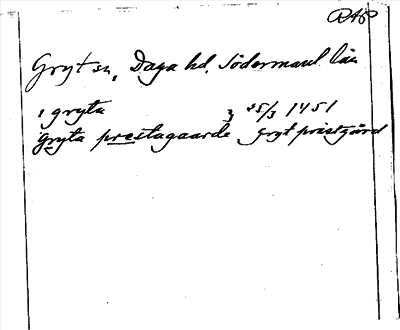 RAP
Gryt sn, Daga hd. Södermanl län
i gryta 25/3 1451
gryta prestagaarde, Gryt prästgård